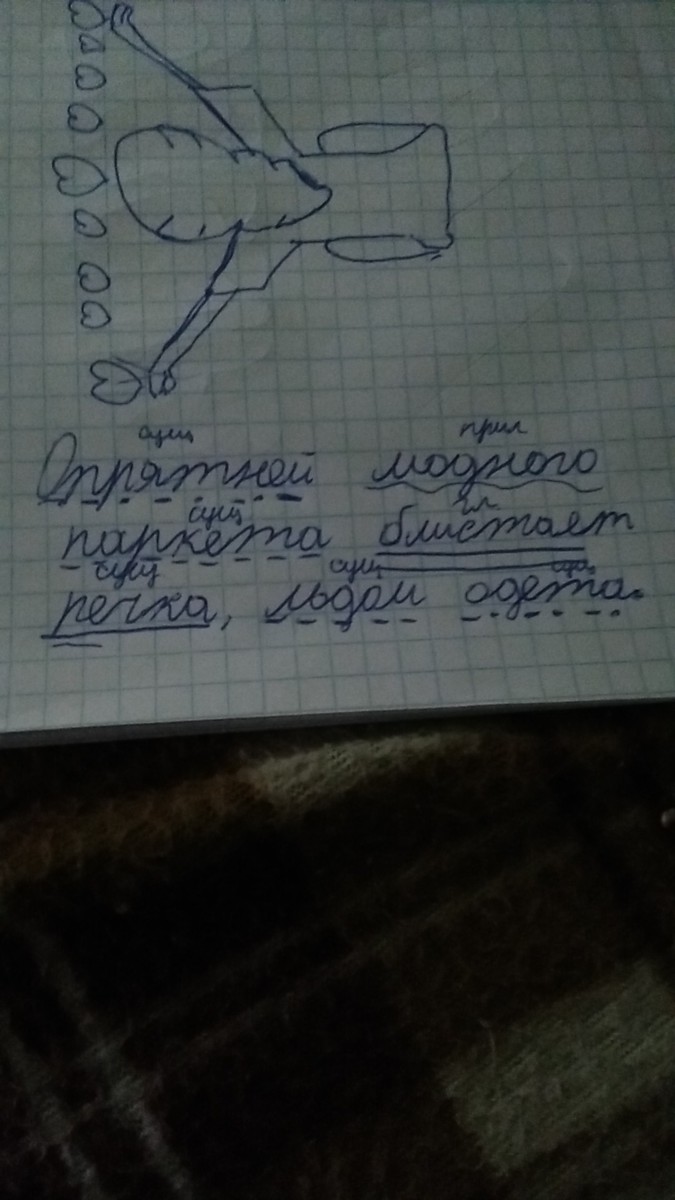 сущ прил
Опрятней модного
сущ гл
паркета блистает
сущ сущ
речка, льдом одета.